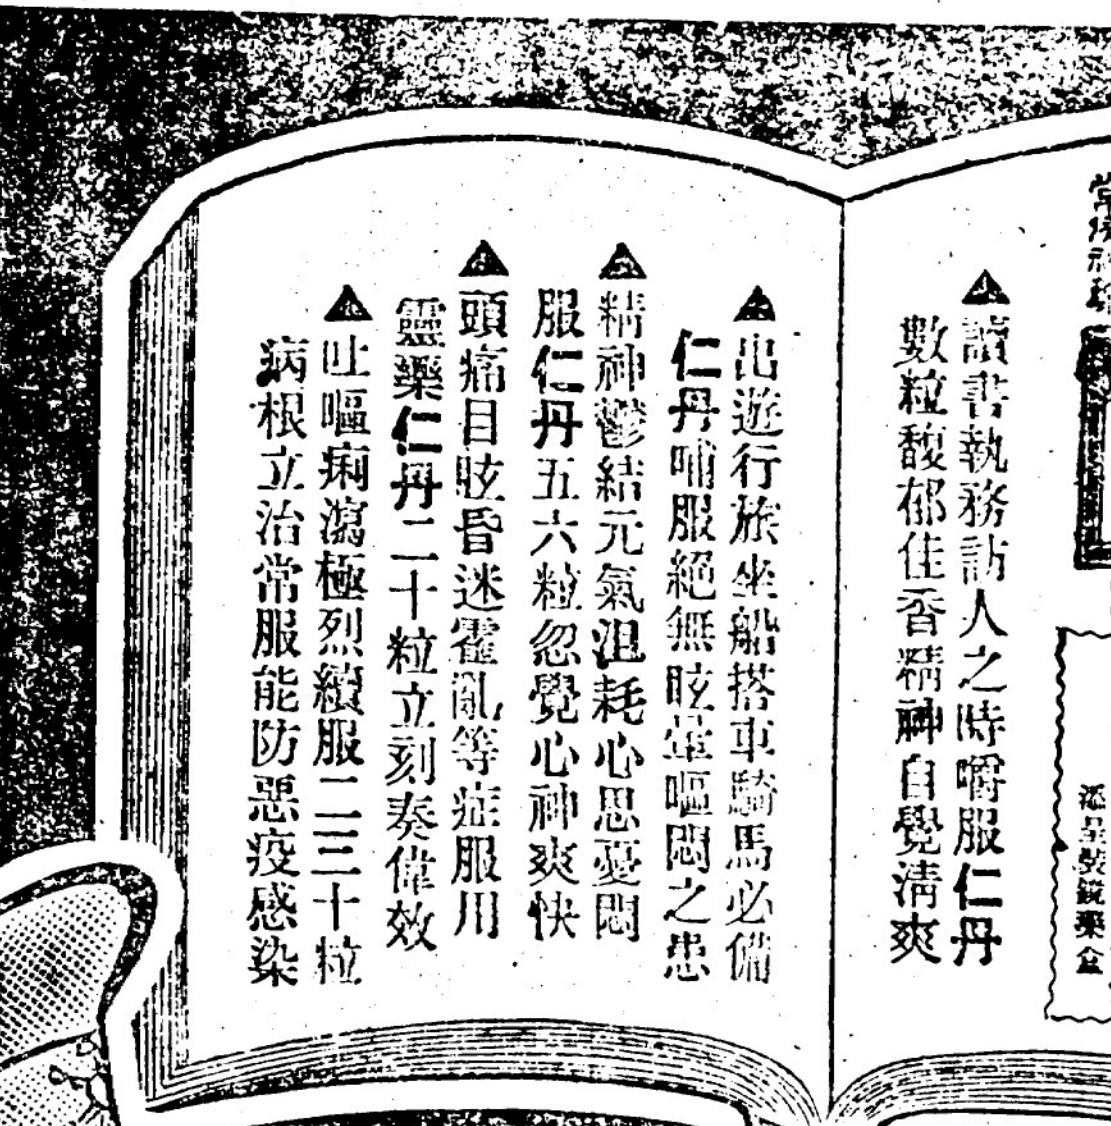 讀書執務訪人之時嚼服仁丹
數粒馥郁佳香精神自覺清爽
出遊行旅坐船搭車騎馬必備
仁丹哺服絕無眩暈嘔悶之患
精神鬱結元氣沮耗心思憂悶
服仁丹五六粒忽覺心神爽快
頭痛目眩昏迷霍亂等症服用
靈藥仁丹二十粒立刻奏偉效
吐嘔痢瀉極烈續服二三十粒
病根立治常服能防惡疫感染
添呈裝鏡藥盒